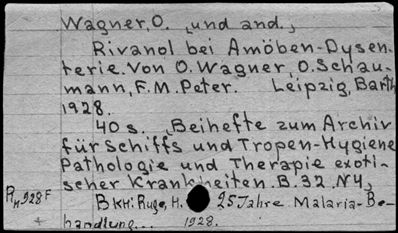 Wagner, O. , und and.,
Rivanol bei Amöben-Dysen-
terie. Von O. Wagner, O. Schau-
mann, F. M. Peter. Leipzig, Barth
1928.
40 s. , Beihefte zum Archiv
für Schiffs und Tropen-Hygiene
Pathologie und Therapie exoti-
scher Krankheiten. B. 32. N4,
R H 928 F
Bkh: Ruge, H. 25 Jahre Malaria-Be-
handlung... 1928.